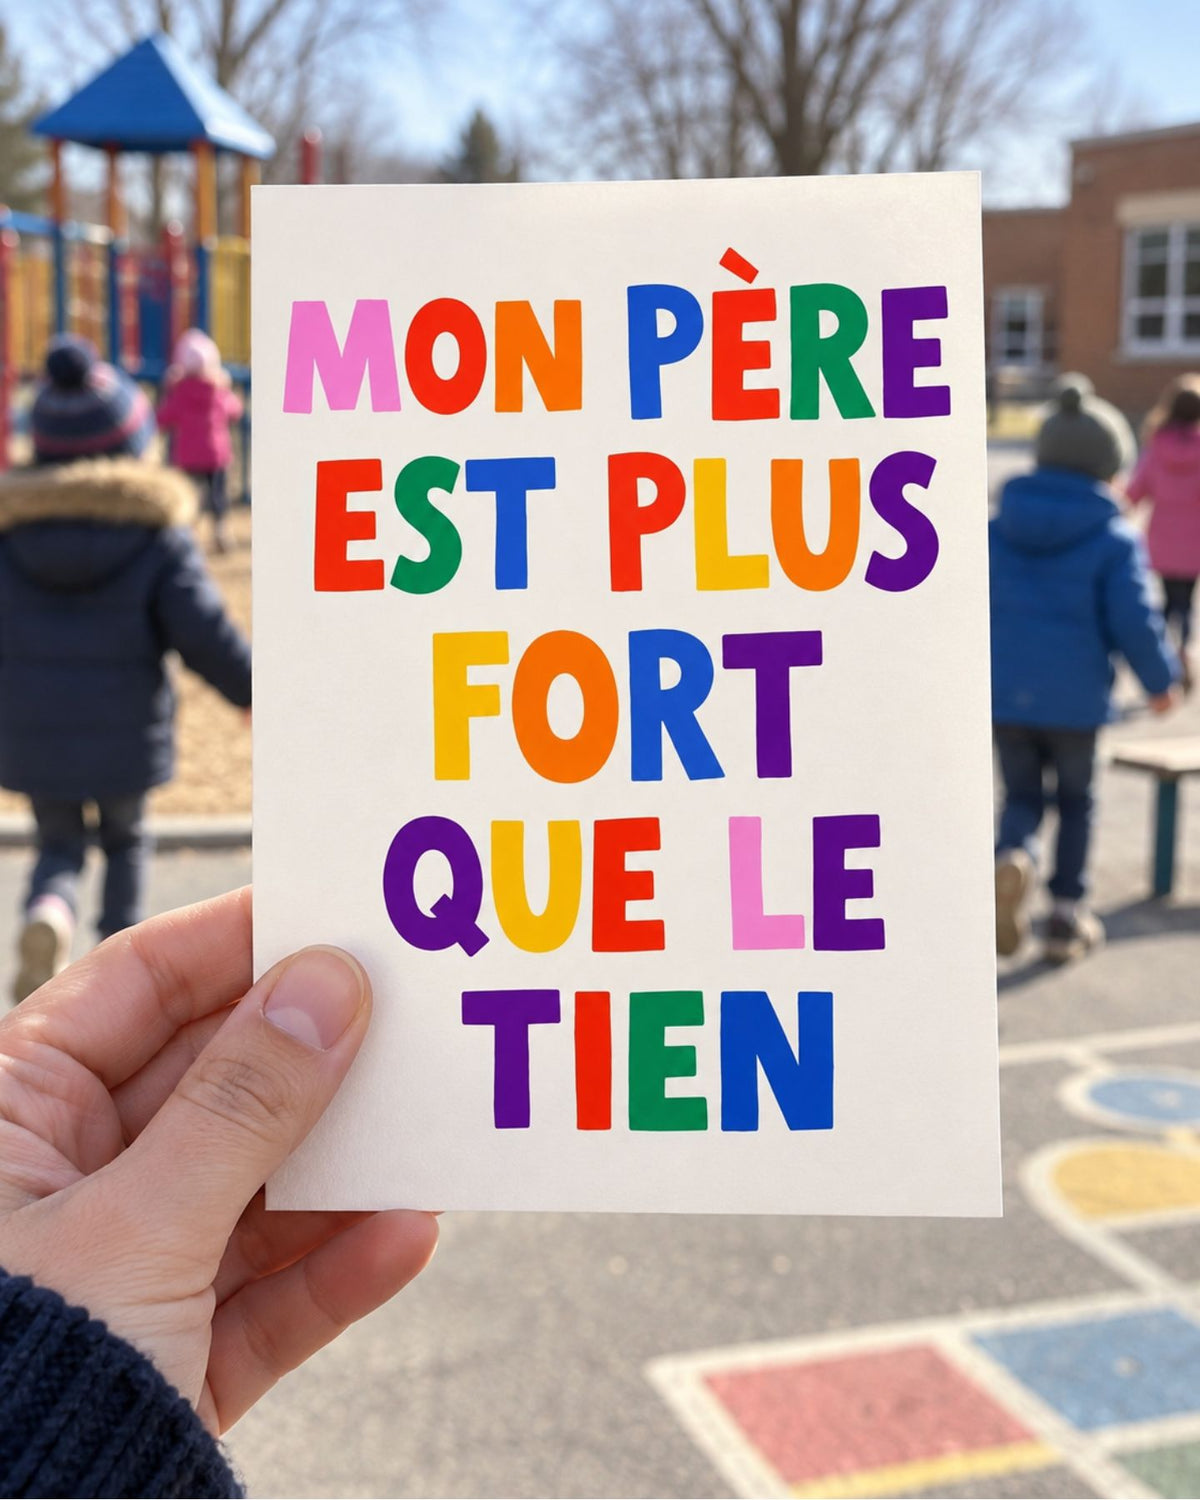 MON PÈRE
EST PLUS
FORT
QUE LE
TIEN